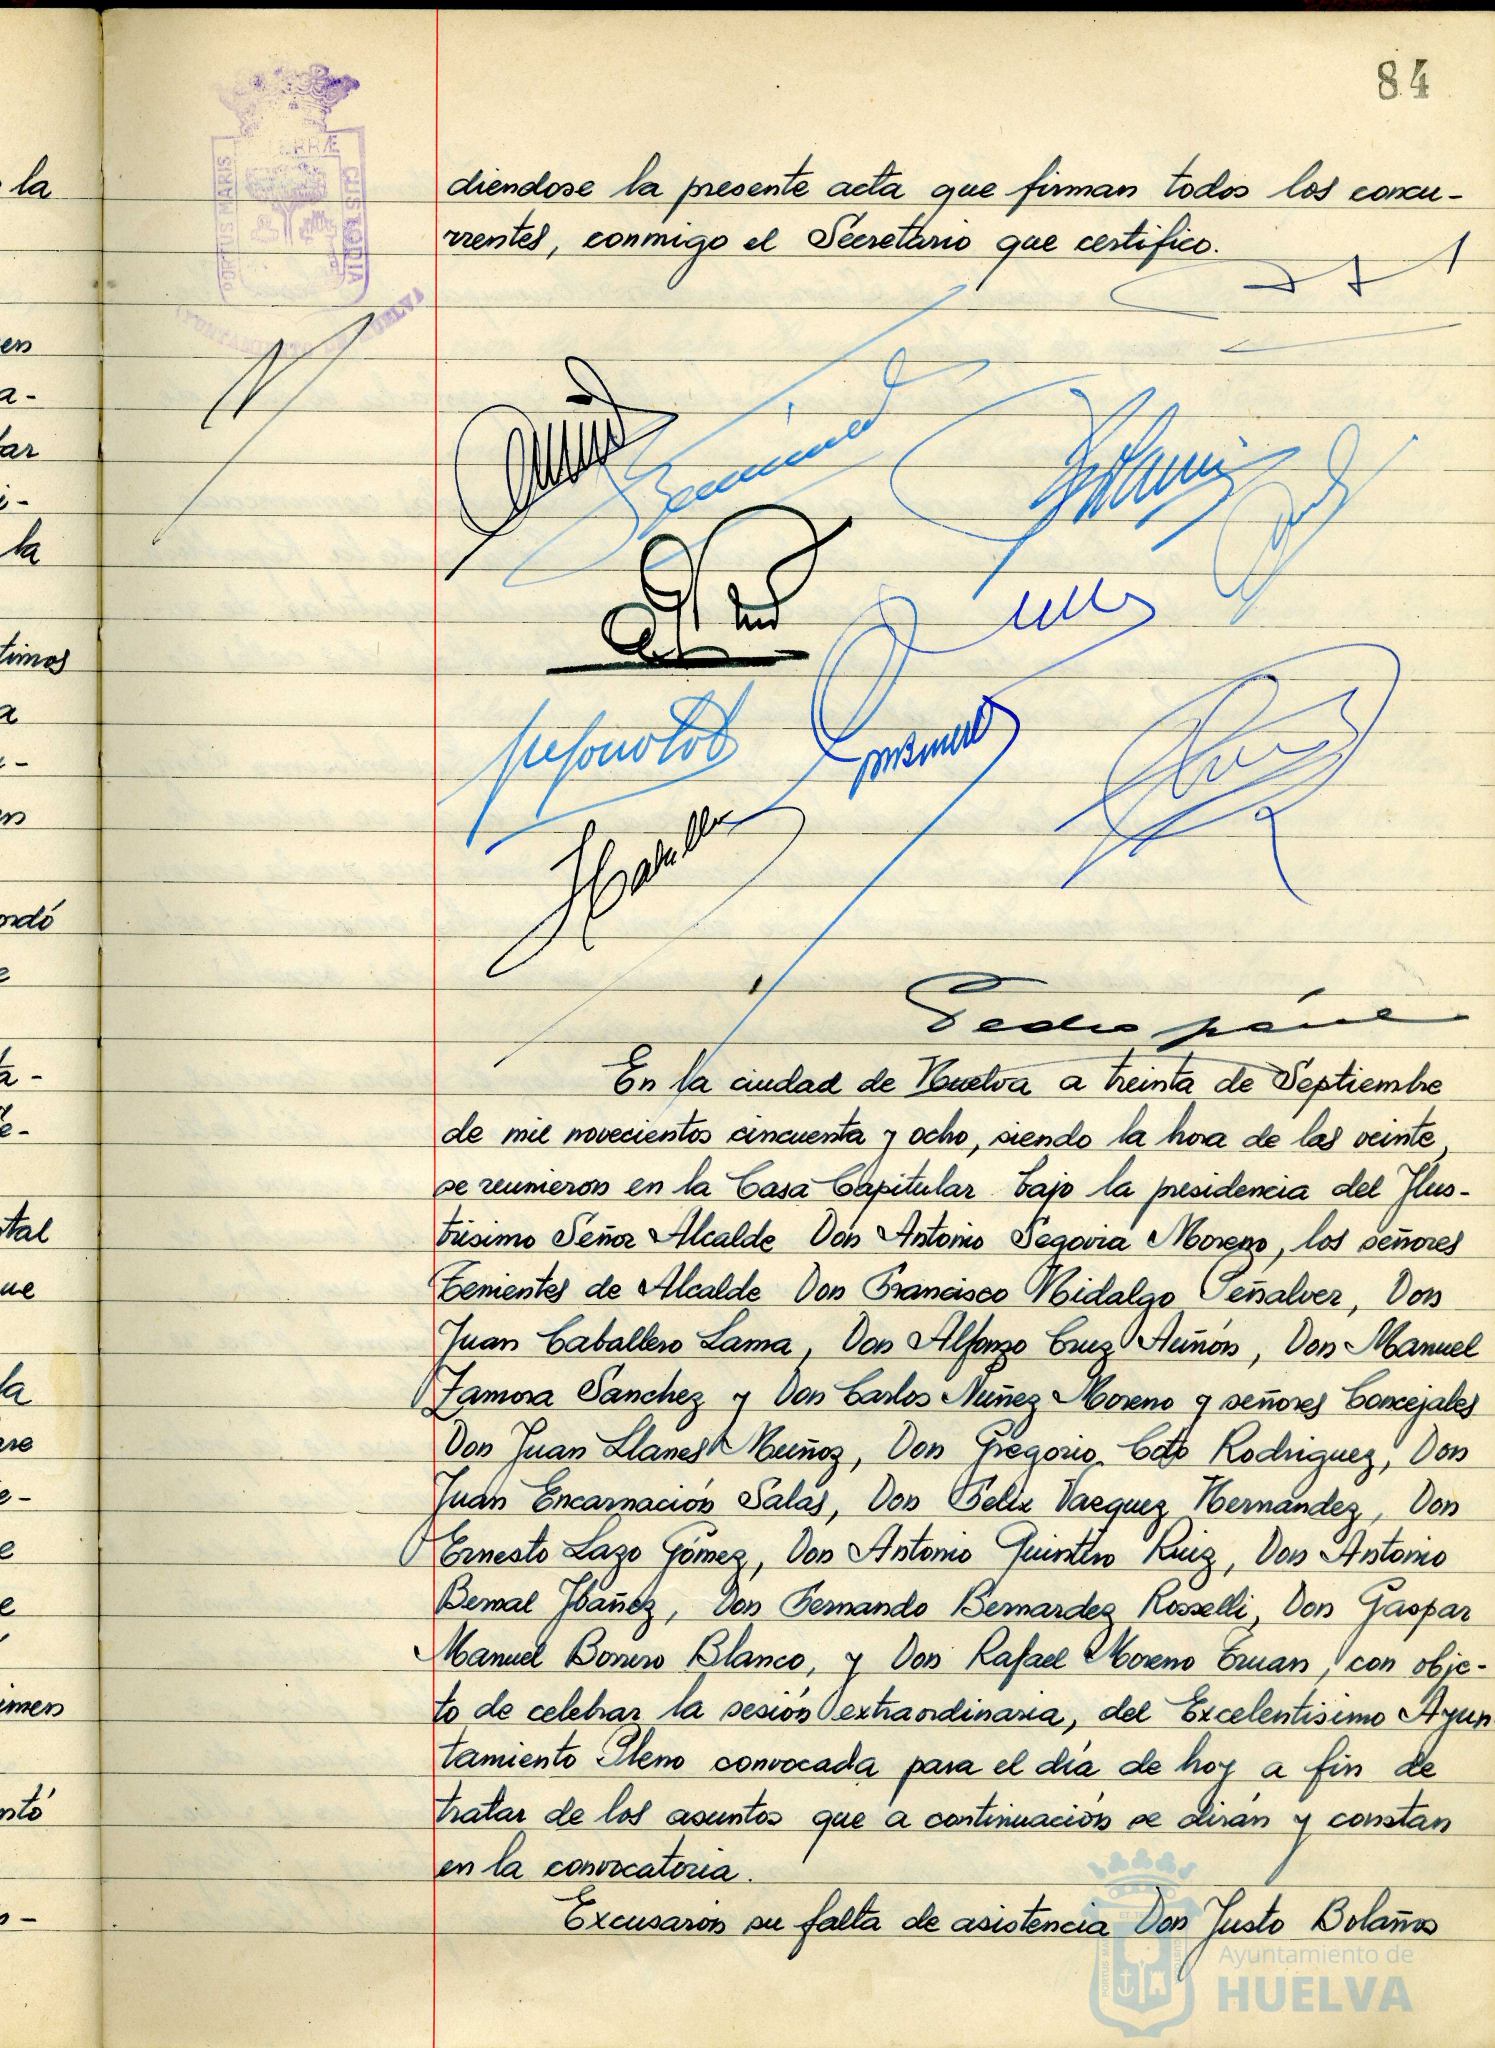 84
diendose la presente acta que firman todos los concu-
rrentes, conmigo el Secretario que certifico.
En la ciudad de Huelva a treinta de Septiembre
de mil novecientos cincuenta y ocho, siendo la hora de las veinte,
se reunieron en la Casa Capitular bajo la presidencia del Ilus-
trisimo Señor Alcalde Don Antonio Segovia Moreno, los señores
Tenientes de Alcalde Don Francisco Hidalgo Peñalver, Don
Juan Caballero Lama, Don Alfonzo Cruz Auñón, Don Manuel
Zamora Sanchez y Don Carlos Nuñez Moreno y señores Concejales
Don Juan Llanes Muñoz, Don Gregorio Coto Rodriguez, Don
Juan Encarnación Salas, Don Felix Vazquez Hernandez, Don
Ernesto Lazo Gómez, Don Antonio Quintero Ruiz, Don Antonio
Bernal Ibañez, Don Fernando Bernardez Rosselli, Don Gaspar
Manuel Borrero Blanco, y Don Rafael Moreno Eruan, con obje-
to de celebrar la sesión extraordinaria, del Excelentisimo Ayun
tamiento Pleno convocada para el día de hoy a fin de
tratar de los asuntos que a continuación se dirán y constan
en la convocatoria.
Excusaron su falta de asistencia Don Justo Bolaños
PORTUS MARIS
TERRÆ
CUSTODIA
AYUNTAMIENTO DE HUELVA
la
en
a-
la
timos
a
ordó
e
ta-
e-
tal
ue
la
e-
e
e
imen
ntó
Ayuntamiento de
HUELVA